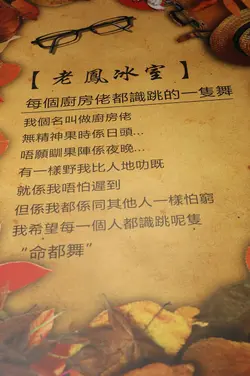 【老鳳冰室】
每個廚房佬都識跳的一隻舞
我個名叫做廚房佬
無精神果時係日頭...
唔願瞓果陣係夜晚...
有一樣野我比人地叻既
就係我唔怕遲到
但係我都係同其他人一樣怕窮
我希望每一個人都識跳呢隻
"命都舞"